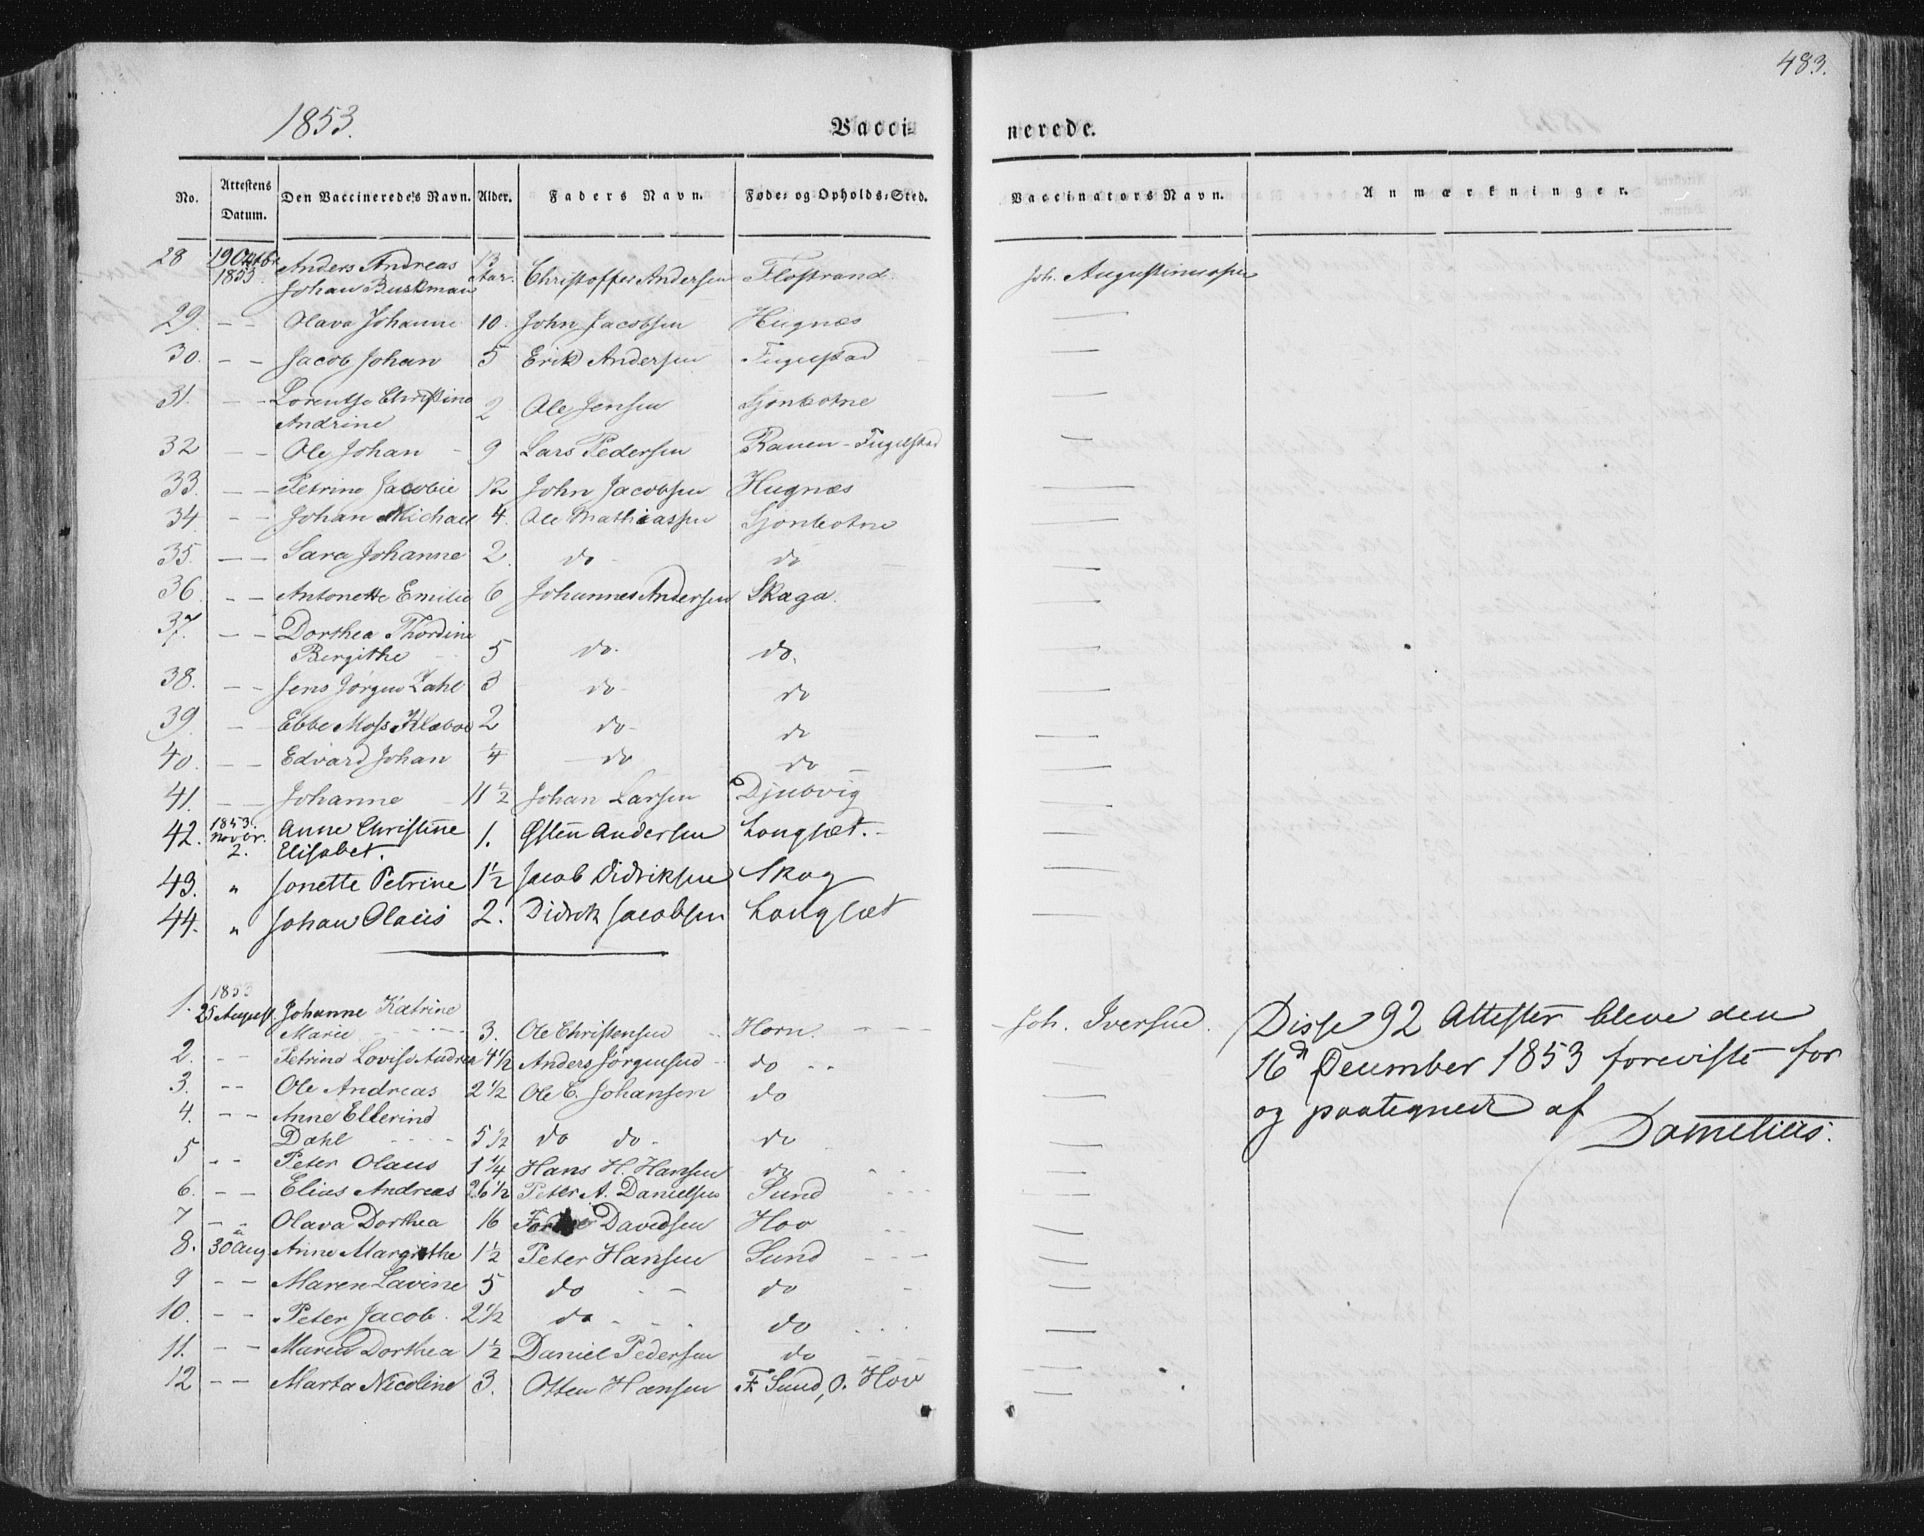 483.
1853.
Vacci-
nerede.
No. Attestens Datum. Den Vaccineredes Navn. Alder. Faders Navn. Føde- og Opholds-Sted. Vaccinators Navn. Anmærkninger.
28 19 Octbr 1853 Anders Andreas Johan Buskman 13 Aar. Christoffer Andersen Flostrand. Joh. Augustinussen
29. — — Olava Johanne 10. John Jacobsen Hugnæs —
30. — — Jacob Johan 5 Erik Andersen Fugelstad —
31. — — Lorentse Christine Andrine 2 Ole Jensen Sjonbotne —
32 — — Ole Johan 9 Lars Pedersen Ranen-Fugelstad —
33. — — Petrine Jacobie 12 John Jacobsen Hugnæs —
34 — — Johan Michael 4. Ole Mathiassen Sjonbotne —
35. — — Sara Johanne 2. do do —
36. — — Antonette Emilie 6 Johannes Andersen Skaga. —
37. — — Dorthea Thordine Bergithe 5 do. do. —
38. — — Jens Jørgen Zahl 3 do do —
39 — Ebbe Moss Klæboe 2 do do —
40. — — Edvard Johan 1/4 do do —
41. — — Johanne 11 1/2 Johan Larsen Djupvig —
42. 1853. Novbr. 2. Anne Christine Elisabet. 1. Østen Andersen Langsæt. —
43. " Jonette Petrine 1 1/2 Jacob Didriksen Skog —
44. " Johan Olaus 2. Didrik Jacobsen Langsæt —
1. 1853 25 August. Johanne Katrine Marie 3. Ole Christensen Horn. Joh. Iversen. Disse 92 Attester bleve den
2. — — Petrine Lovise Andrea 4 1/2 Anders Jørgensen do — 16d December 1853 foreviste for
3. — — Ole Andreas 2 1/2 Ole C. Johansen do — og paategnede af
4. — — Anne Ellerine Dahl 5 1/2 do do do — Domelius.
5 — — Peter Olaus 1 1/4 Hans H. Hansen do —
6. — — Elias Andreas 26 1/2 Peter A. Danielsen Sund —
7 — — Olava Dorthea 16 Davidsen Hov —
8. 30 Aug Anne Margrethe 1 1/2 Peter Hansen Sund —
9 — — Maren Lavine 5 do do —
10. — — Peter Jacob 2 1/2 do do —
11. — — Maren Dorthea 1 1/2 Daniel Pedersen do —
12 — — Marta Nicoline 3. Otten Hansen F. Sund, O. Hov —